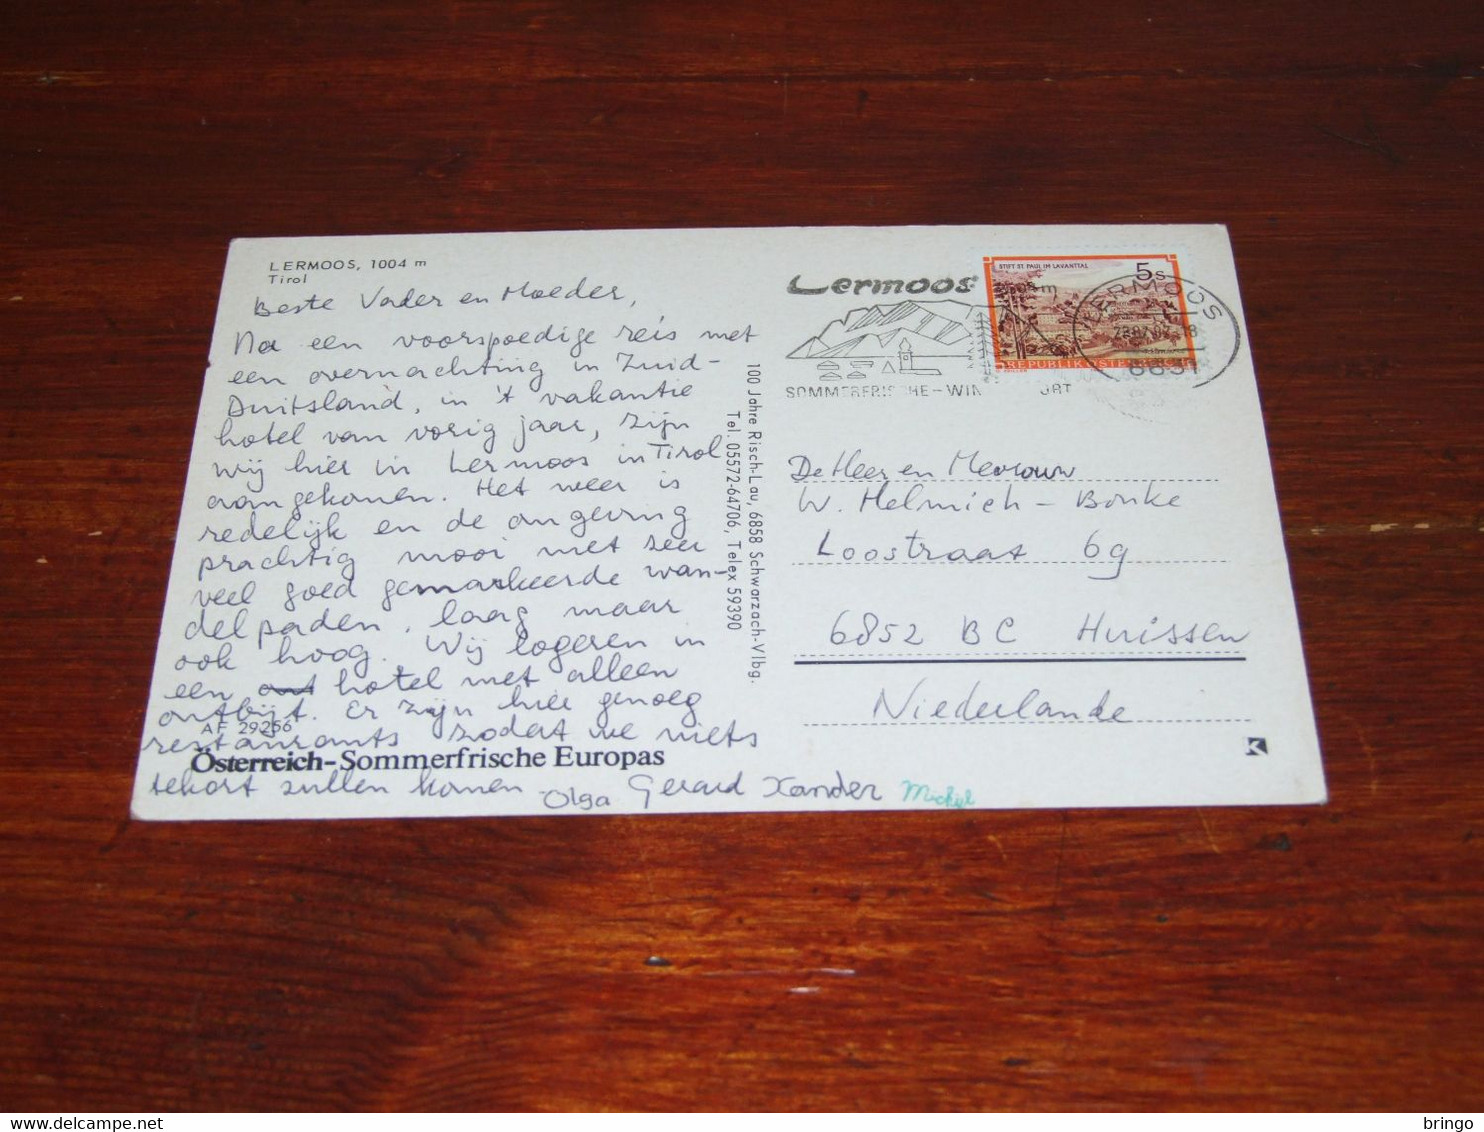 LERMOOS, 1004 m
Tirol
Beste Vader en Moeder,
Na een voorspoedige reis met
een overnachting in Zuid-
Duitsland, in 't vakantie
hotel van vorig jaar, zijn
wij hier in Lermoos in Tirol
aangekomen. Het weer is
redelijk en de omgeving
prachtig mooi met zeer
veel goed gemarkeerde wan-
delpaden, laag maar
ook hoog. Wij logeren in
een hotel met alleen
ontbijt. Er zijn hier genoeg
AF 29256
restaurants zodat we niets
Österreich-Sommerfrische Europas
tekort zullen komen.
Olga Gerard Xander Michel
100 Jahre Risch-Lau, 6858 Schwarzach-Vlbg.
Tel. 05572-64706, Telex 59390
Lermoos
SOMMERFRISCHE-WIN ORT
STIFT ST PAUL IM LAVANTTAL
5 S
REPUBLIK ÖSTERREICH
LERMOOS
6631
De Heer en Mevrouw
W. Helmich - Bonke
Loostraat 6g
6852 BC Huissen
Niederlande
K
delcampe.net
bringo